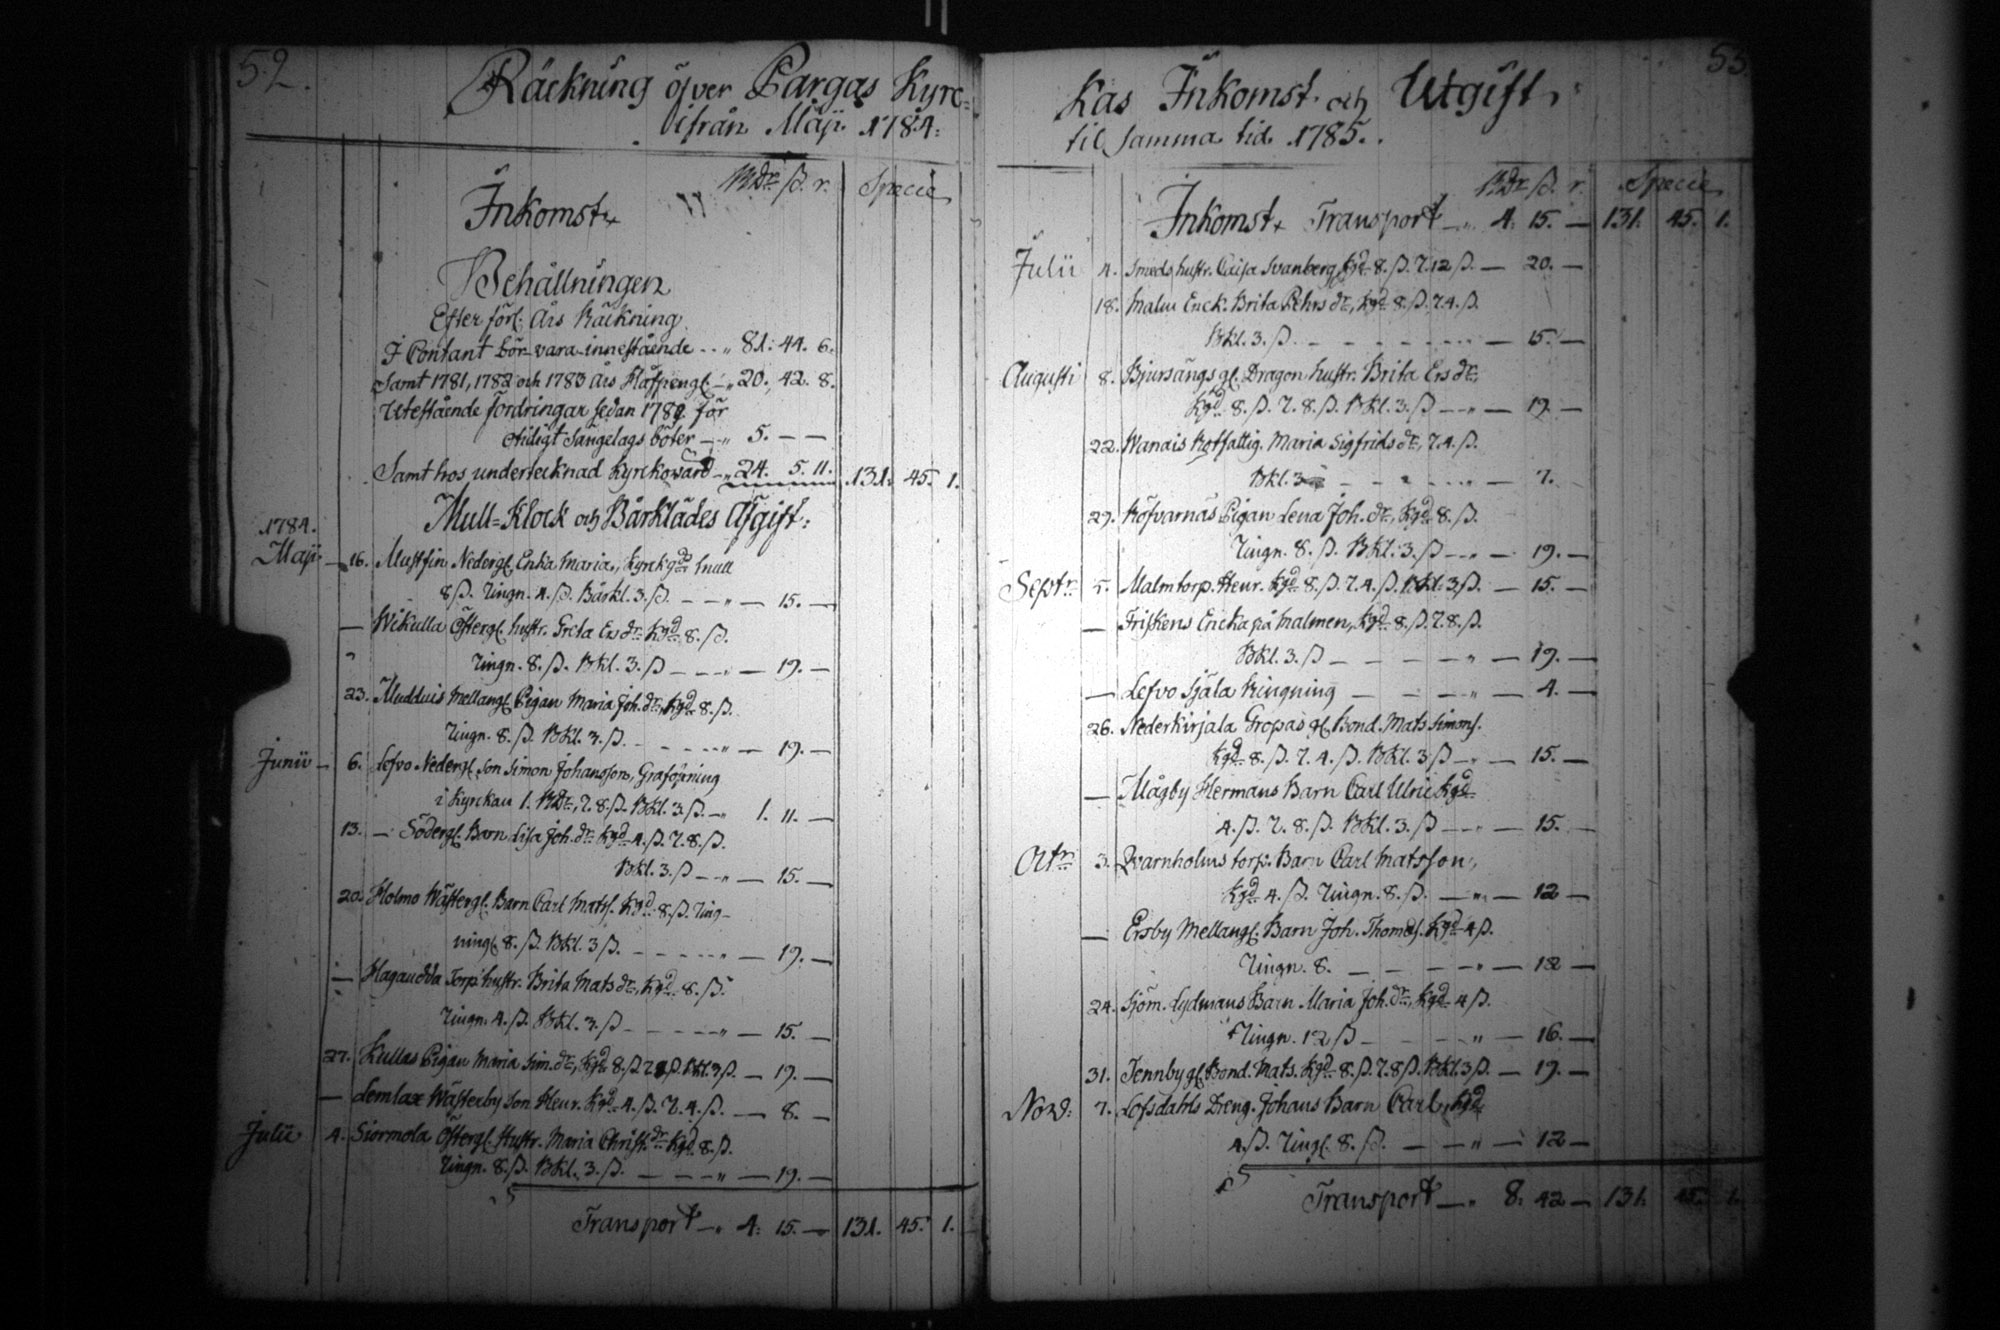 52.
Räckning öfver Pargas Kyrc=
ifrån Maji 1784:
Rdr ß. r. Specie
Inkomst
Behållningen
Efter förl. Års Räckning
I Contant bör vara innestående - - „ 81: 44. 6.
Samt 1781, 1782 och 1783 års Håfpengl. - „ 20. 42. 8.
Utestående fordringar sedan 1782 för
otidigt Sängelags böter - „ 5. — —
Samt hos undertecknad Kyrckovärd - „ 24. 5. 11. 131. 45. 1.
Mull= Klock och Bårklädes Afgift:
1784.
Maji — 16. Mustfin Nedergl. Enka Maria, Kyrckgd mull
8 ß. Ringn. 4. ß. Bårkl. 3. ß. — — „ — 15. —
— Wikulla Östergl. hustr. Greta Ers dr. Kgd 8. ß.
Ringn. 8. ß. Bkl. 3. ß — — „ — 19. —
23. Mudduis Mellangl. Pigan Maria Joh. dr, Kgd 8. ß.
Ringn. 8. ß. Bkl. 3. ß. - - - - „ — 19. —
Junii — 6. Lofvo Nedergl. Son Simon Johansson, Graföpning
i Kyrckan 1. Rdr, R. 8. ß. Bkl. 3. ß. — „ 1. 11. —
13. — Södergl. Barn Lisa Joh. dr Kgd 4. ß. R. 8. ß.
Bkl. 3. ß — „ — 15. —
20. Holmo Wästergl. Barn Carl Mats. Kgd 8. ß. Ring-
ningl. 8. ß. Bkl. 3 ß. - - - - „ — 19. —
— Hagaudda Torp. hustr. Brita Mats dr, Kgd 8. ß.
Ringn. 4. ß. Bkl. 3. ß - - - - „ — 15. —
27. Kullas Pigan Maria Sim. dr, Kgd 8. ß R 8 ß. Bkl. 3 ß. — 19. —
— Lemlax Wästerby Son Henr. Kgd 4. ß. R. 4. ß. — 8. —
Julii 4. Siormola Östergl. Hustr. Maria Christ. dr Kgd 8. ß.
Ringn. 8. ß. Bkl. 3. ß. — — „ — 19. —
Transport — „ 4: 15. — 131. 45. 1.
53
Kas Inkomst och Utgift,
til samma tid 1785.
Rdr ß. r. Specie
Inkomst Transport — „ 4. 15. — 131. 45. 1.
Julii 4. Smeds hustr. Caisa Svanberg Kgd 8. ß. R. 12 ß. — 20. —
18. Malm Enck. Brita Pehrs dr, Kgd 8. ß. R. 4. ß.
Bkl. 3. ß. - - - - - - — 15. —
Augusti 8. Bjursängs gl. Dragon hustr. Brita Ers dr,
Kgd 8. ß. R. 8. ß. Bkl. 3. ß — „ — 19. —
22. Wanais Rotfattig. Maria Sigfrids dr, R. 4. ß.
Bkl. 3 - - - - „ — 7. —
29. Röfvarnäs Pigan Lena Joh. dr, Kgd 8. ß.
Ringn. 8. ß. Bkl. 3. ß — „ — 19. —
Septr 5. Malm torp. Henr. Kgd 8. ß. R. 4. ß. Bkl. 3. ß. — 15. —
— Friskens Ericka på Malmen, Kgd 8. ß. R. 8. ß.
Bkl. 3. ß — — — — „ — 19. —
— Lefvo Själa Ringning — — — „ — 4. —
26. Nederkirjala Gropas gl. Bond. Mats Simons.
Kgd 8. ß. R. 4. ß. Bkl. 3 ß — „ — 15. —
— Mågby Hermans Barn Carl Ulric Kgd
4. ß. R. 8. ß. Bkl. 3. ß — „ — 15. —
Octr 3. Qvarnholms torp. Barn Carl Matsson,
Kgd 4. ß. Ringn. 8. ß. — „ — 12 —
— Ersby Mellangl. Barn Joh. Thomas. Kgd 4 ß.
Ringn. 8. — — — „ — 12 —
24. Sjöm. Lydmans Barn Maria Joh. dr, Kgd 4 ß.
Ringn. 12 ß — — — „ — 16. —
31. Tennby gl. Bond. Mats. Kgd 8. ß. R. 8 ß. Bkl. 3 ß. — 19. —
Nov: 7. Lofsdahls Dreng. Johans Barn Carl, Kgd
4. ß. Ringl. 8. ß. — — „ — 12 —
Transport — „ 8. 42 — 131. 45. 1.